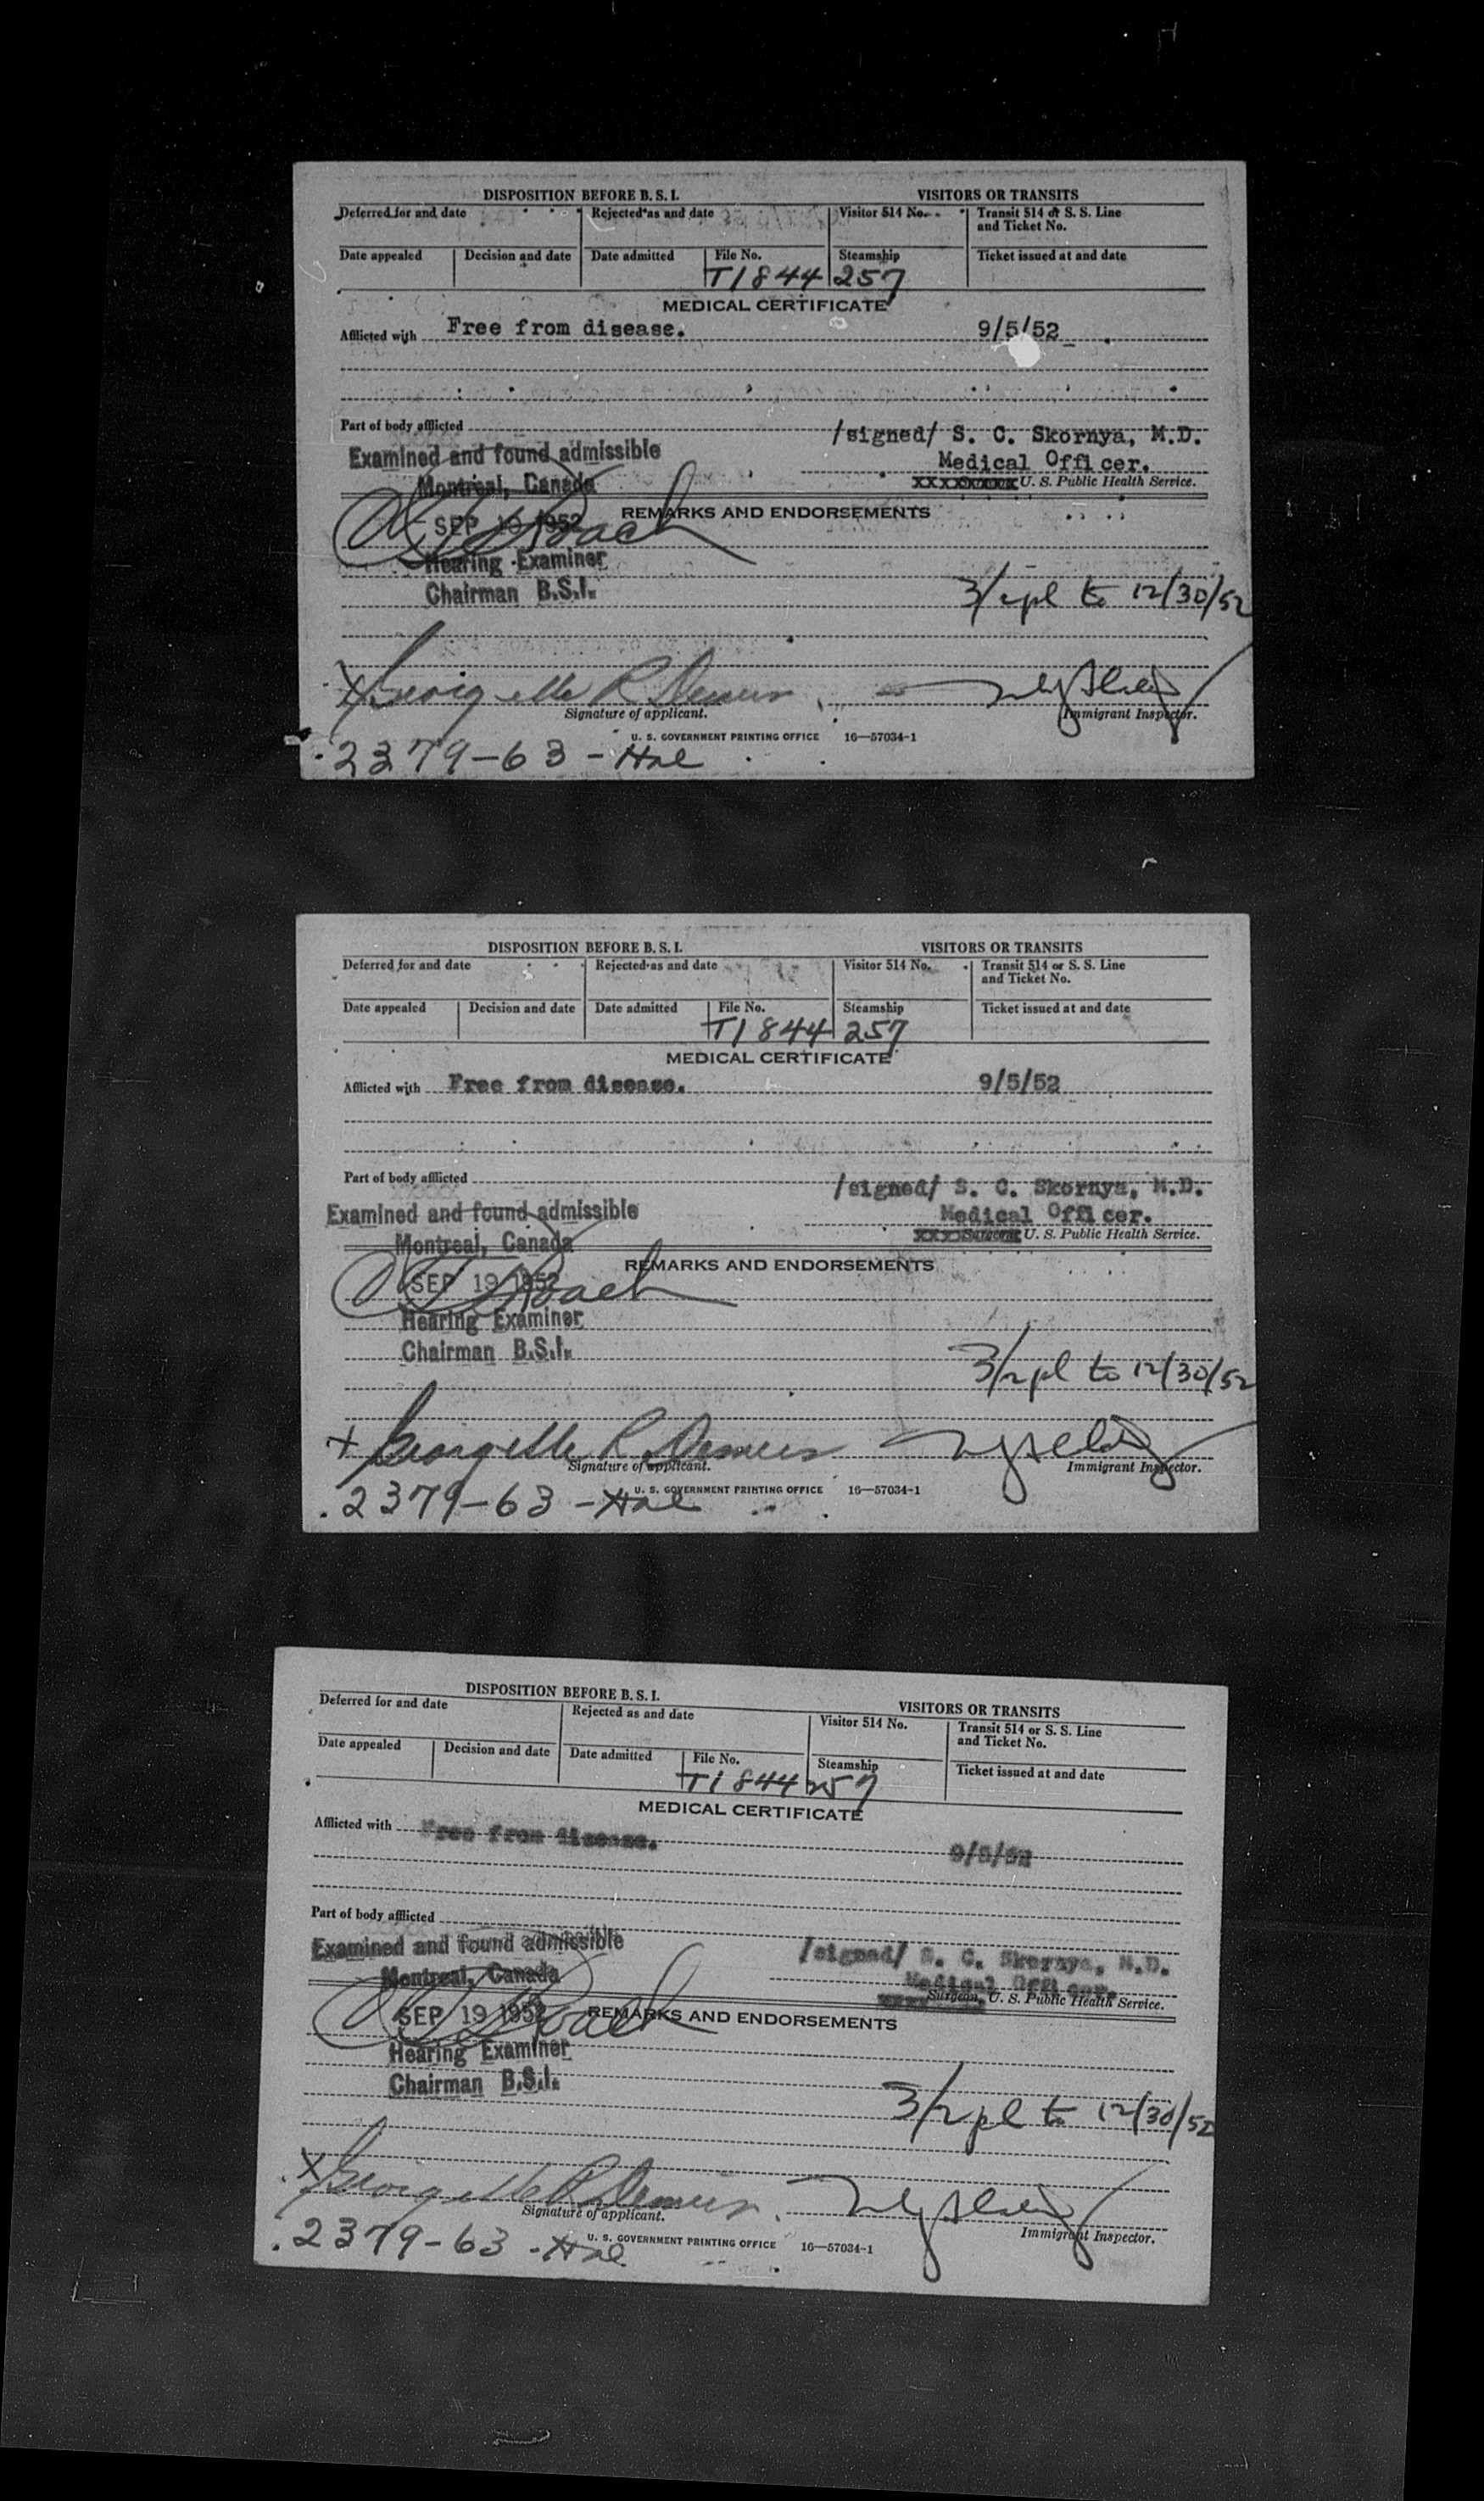 DISPOSITION BEFORE B. S. I. VISITORS OR TRANSITS
Deferred for and date Rejected as and date Visitor 514 No. Transit 514 or S. S. Line
and Ticket No.
Date appealed Decision and date Date admitted File No. Steamship Ticket issued at and date
T1844 257
MEDICAL CERTIFICATE
Afflicted with Free from disease. 9/5/52
Part of body afflicted /signed/ S. C. Skornya, M.D.
Examined and found admissible Medical Officer.
Montreal, Canada U. S. Public Health Service.
SEP 19 1952 Roach REMARKS AND ENDORSEMENTS
Hearing Examiner
Chairman B.S.I. to 12/30/52
X Georgette R Demers
Signature of applicant. Immigrant Inspector.
U. S. GOVERNMENT PRINTING OFFICE 16—57034-1
2379-63 -
DISPOSITION BEFORE B. S. I. VISITORS OR TRANSITS
Deferred for and date Rejected as and date Visitor 514 No. Transit 514 or S. S. Line
and Ticket No.
Date appealed Decision and date Date admitted File No. Steamship Ticket issued at and date
T1844 257
MEDICAL CERTIFICATE
Afflicted with Free from disease. 9/5/52
Part of body afflicted /signed/ S. C. Skornya, M.D.
Examined and found admissible Medical Officer.
Montreal, Canada Surgeon U. S. Public Health Service.
SEP 19 1952 Roach REMARKS AND ENDORSEMENTS
Hearing Examiner
Chairman B.S.I. to 12/30/52
X Georgette R Demers
Signature of applicant. Immigrant Inspector.
U. S. GOVERNMENT PRINTING OFFICE 16—57034-1
2379-63 -
DISPOSITION BEFORE B. S. I. VISITORS OR TRANSITS
Deferred for and date Rejected as and date Visitor 514 No. Transit 514 or S. S. Line
and Ticket No.
Date appealed Decision and date Date admitted File No. Steamship Ticket issued at and date
T1844 257
MEDICAL CERTIFICATE
Afflicted with Free from disease. 9/5/52
Part of body afflicted
Examined and found admissible /signed/ S. C. Skornya, M.D.
Montreal, Canada Medical Officer.
Surgeon, U. S. Public Health Service.
SEP 19 1952 Roach REMARKS AND ENDORSEMENTS
Hearing Examiner
Chairman B.S.I. to 12/30/52
X Georgette R Demers
Signature of applicant. Immigrant Inspector.
U. S. GOVERNMENT PRINTING OFFICE 16—57034-1
2379-63 -